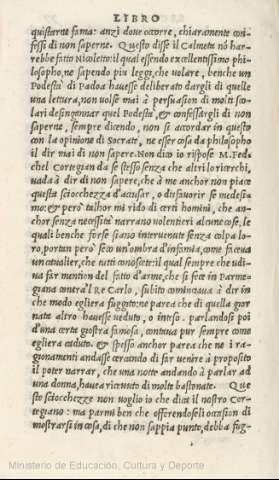 LIBRO
quistarne fama: anzi doue occorre, chiaramente con-
fessi di non saperne. Questo disse il Calmeta nõ har-
rebbe fatto Nicoletto: il qual essendo excellentissimo phi-
losopho, ne sapendo piu leggi, che volare, benche un
Podestà di Padoa hauesse deliberato dargli di quelle
una lettura, non uolse mai à persuasion di molti sco-
lari desingannar quel Podestà, & confessargli di non
saperne, sempre dicendo, non si accordar in questo
con la opinione di Socrate, ne esser cosa da philosopho
il dir mai di non sapere. Non dico io rispose M. Fede
chel Cortegian da se stesso senza che altri lo ricerchi,
uada à dir di non sapere, che à me anchor non piace
questa sciocchezza d'accusar, o disfauorir se medesi-
mo: & però talhor mi rido di certi homini, che an-
chor senza necessità narrano uolentieri alcune cose, le
quali benche forse siano interuenute senza colpa lo-
ro, portan però seco un'ombra d'infamia, come faceua
un caualier, che tutti conoscete: il qual sempre che udi-
ua far mention del fatto d'arme, che si fece in Parme-
giana contra'l Re Carlo, subito cominciaua à dir in
che modo egli era fuggito: ne parea che di quella gior-
nata altro hauesse ueduto, o inteso. parlandosi poi
d'una certa giostra famosa, contaua pur sempre come
egli era caduto. & spesso anchor parea che ne i ra-
gionamenti andasse cercando di far uenire à proposito
il poter narrar, che una notte andando à parlar ad
una donna, hauea riceuuto di molte bastonate. Que
ste sciocchezze non uoglio io che dica il nostro Cor-
tegiano: ma parmi ben che offerendosegli occasion di
mostrarsi in cosa, di che non sappia punto, debba fug-
Ministerio de Educación, Cultura y Deporte